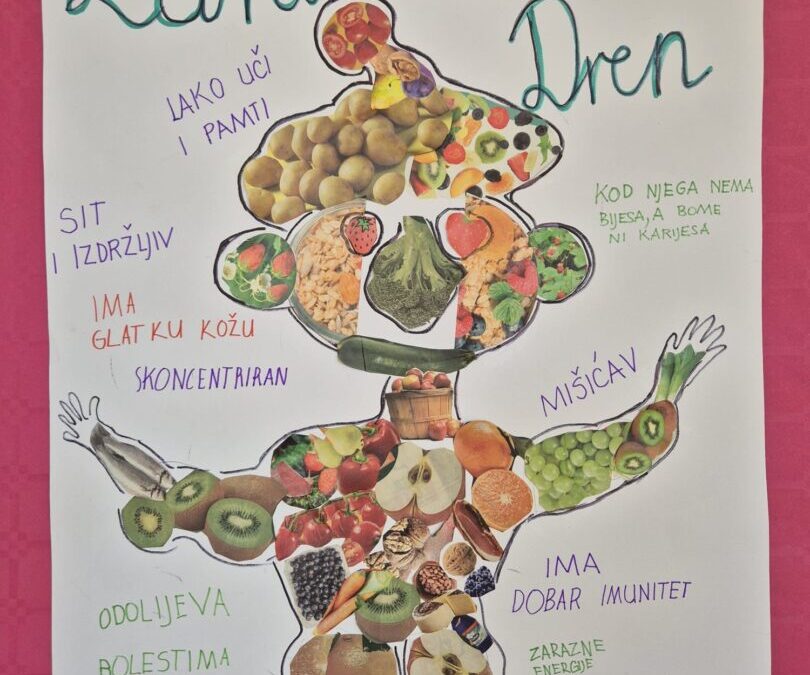 Dren
LAKO UČI
I PAMTI
KOD NJEGA NEMA
BIJESA, A BOME
NI KARIJESA
SIT
I IZDRŽLJIV
IMA
GLATKU KOŽU
SKONCENTRIRAN
MIŠIĆAV
IMA
DOBAR IMUNITET
ODOLIJEVA
BOLESTIMA
ZARAZNE
ENERGIJE